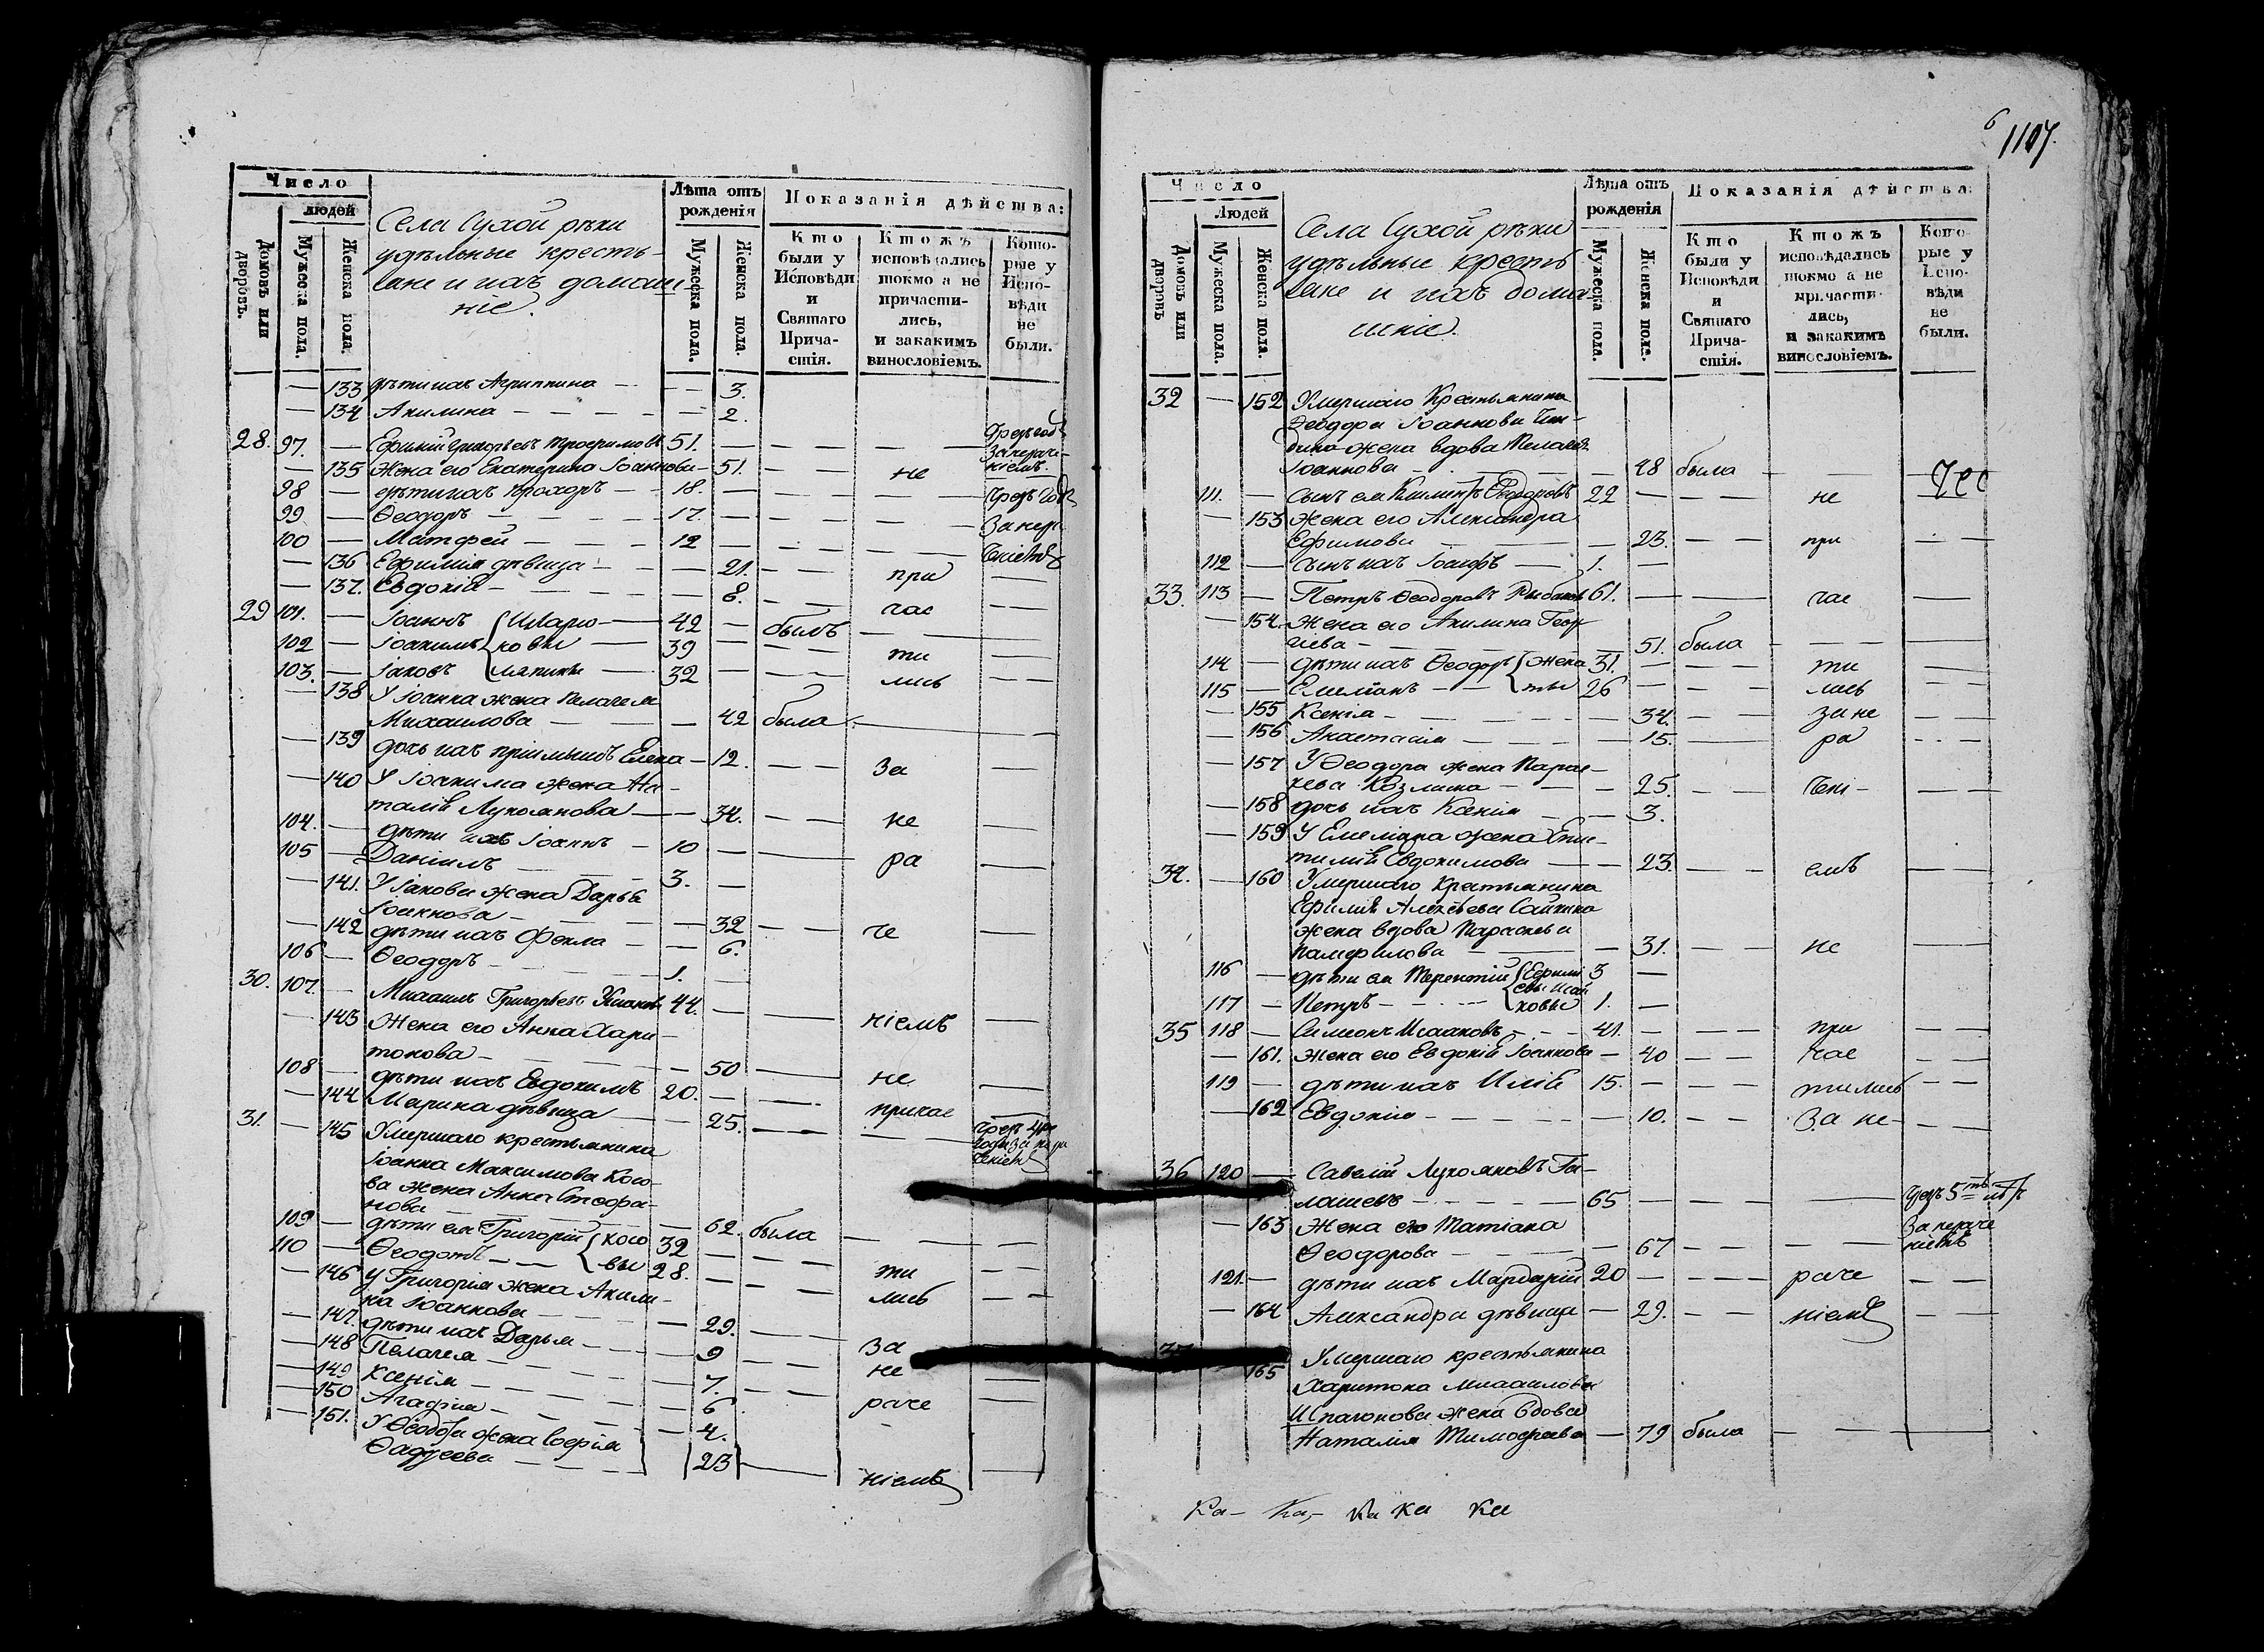 Число
людей
Домовъ или дворовъ.
Мужеска пола.
Женска пола.
Села Сухой рѣки
удѣльные кресть-
яне и ихъ домаш
ніе.
Лѣта отъ
рожденія
Мужеска пола.
Женска пола.
Показанія дѣйства:
Кто
были у
Исповѣди
и
Святаго
Прича-
стія.
Ктожъ
исповѣдались
токмо а не
причасти-
лись,
и закакимъ
винословіемъ.
Кото-
рые у
Испо-
вѣди
не
были.
— 133 дѣти ихъ Агриппина — — 3.
— 134 Акилина — — — — 2.
28. 97. — Ефимій Григорьевъ 51. — — — —
— 135 Жена его Екатерина Іоаннова — 51. — — не
98 — дѣти ихъ Прохоръ — 18. — — — —
99 — Ѳеодоръ — — — 17. — — — —
100 — Матфей — — — 12 — — — —
— 136 Ефимія дѣвица — — — 21. — — при —
— 137. Евдокія — — — — 8. — — час — —
29 101. — Іоаннъ 42 — былъ — —
102 — Іоакимъ 39 — — ти —
103. — Іаковъ 32 — — лись — —
— 138 У Іоанна жена Пелагея
Михаилова — — — 42 была — — —
— 139 дочь ихъ пріимышъ Елена — 12. — — за —
— 140 У Іоакима жена На-
талія Лукоянова — — 34. — — не —
104. — дѣти ихъ Іоаннъ — 10 — — ра —
105 — Даніилъ — — 3. —
— 141. У Іакова жена Дарья
Іоаннова — — — 32 — — че —
— 142 дѣти ихъ Фекла — — 6.
106 — Ѳеодоръ — — — 1. —
30. 107. — Михаилъ Григорьевъ 44. — — ніемъ —
— 143 Жена его Анна Хари-
тонова — — — 50 — не —
108 — дѣти ихъ Евдокимъ 20. — —
— 144 Марина дѣвица — — 25. — причас —
31. — 145 Умершаго крестьянина
Іоанна Максимова Косо-
ва жена Анна Стефа-
нова — — — 62. была — — —
109 — дѣти ея Григорій { Косо 32 — — ти — —
110 — Ѳеодотъ — — { вы 28. — — лись — —
— 146 У Григорія жена Акили-
на Іоаннова — — — 29. — за —
— 147. дѣти ихъ Дарья — — — 9 — — не —
— 148 Пелагея — — — 7. — — раче —
— 149 Ксенія — — — 6
— 150 Агафія — — — 4.
— 151. У Ѳеодота жена Софія
Ѳадѣева — — — 23 — ніемъ —
6
1107.
Число
Людей
Домовъ или дворовъ
Мужеска пола.
Женска пола.
Села Сухой рѣки
удѣльные кресть
яне и ихъ дома
шніе.
Лѣта отъ
рожденія
Мужеска пола.
Женска пола.
Показанія дѣйства:
Кто
были у
Исповѣди
и
Святаго
Прича-
стія.
Ктожъ
исповѣдались
токмо а не
причасти-
лись,
и закакимъ
винословіемъ.
Кото-
рые у
Испо-
вѣди
не
были.
32 — 152 Умершаго Крестьянина
Ѳеодора Іоаннова
жена вдова Пелагея
Іоаннова — — — 48 была — —
111. — сынъ ея Климентъ Ѳеодоровъ 22 — — — не
— 153 жена его Александра
Ефимова — — 23. — — при — —
112 — сынъ ихъ Іосифъ — 1. —
33. 113 — Петръ Ѳеодоровъ Рыбаковъ 61. — — час —
— 154 Жена его Акилина Геор
гіева — — — 51. была — — —
114 — дѣти ихъ Ѳеодоръ { жена 31. — — — ти —
115 — Емеліанъ — — { ты 26 — — — лись —
— 155 Ксенія — — — — 34. — — за не — —
— 156 Анастасія — — — — 15. — ра — —
— 157 У Ѳеодора жена Парас-
кева Козмина — — — 25. — — чені- — —
— 158 дочь ихъ Ксенія — — 3.
— 159 У Емеліана жена
Евдокимова — — 23. — — емъ —
34. — 160 Умершаго Крестьянина
Ефимія Алексѣева
жена вдова Параскева
Памфилова — — 31. — — не —
116 — дѣти ея Терентій 3 —
117 — Петръ — — — 1. —
35 118 — Симеонъ Исааковъ — — 41. — — — при — —
— 161. жена его Евдокія Іоаннова — 40 — — час — —
119 — дѣти ихъ Илія 15. — — — тились — —
— 162 Евдокія — — — — 10. — — за не- — —
36 120 — Савелій Лукояновъ Га-
лашевъ — — — 65 — — — —
— 163 Жена его Татіана
Ѳеодорова — — — 67 — — — —
121. — дѣти ихъ Мардарій 20 — — — — раче — —
— 164 Александра дѣвица — 29. — — ніемъ —
165 Умершаго крестьянина
Харитона Михаилова
жена вдова
Наталія Тимофеева — 79 была — — —
Ка- Ка,- Ка ка ка